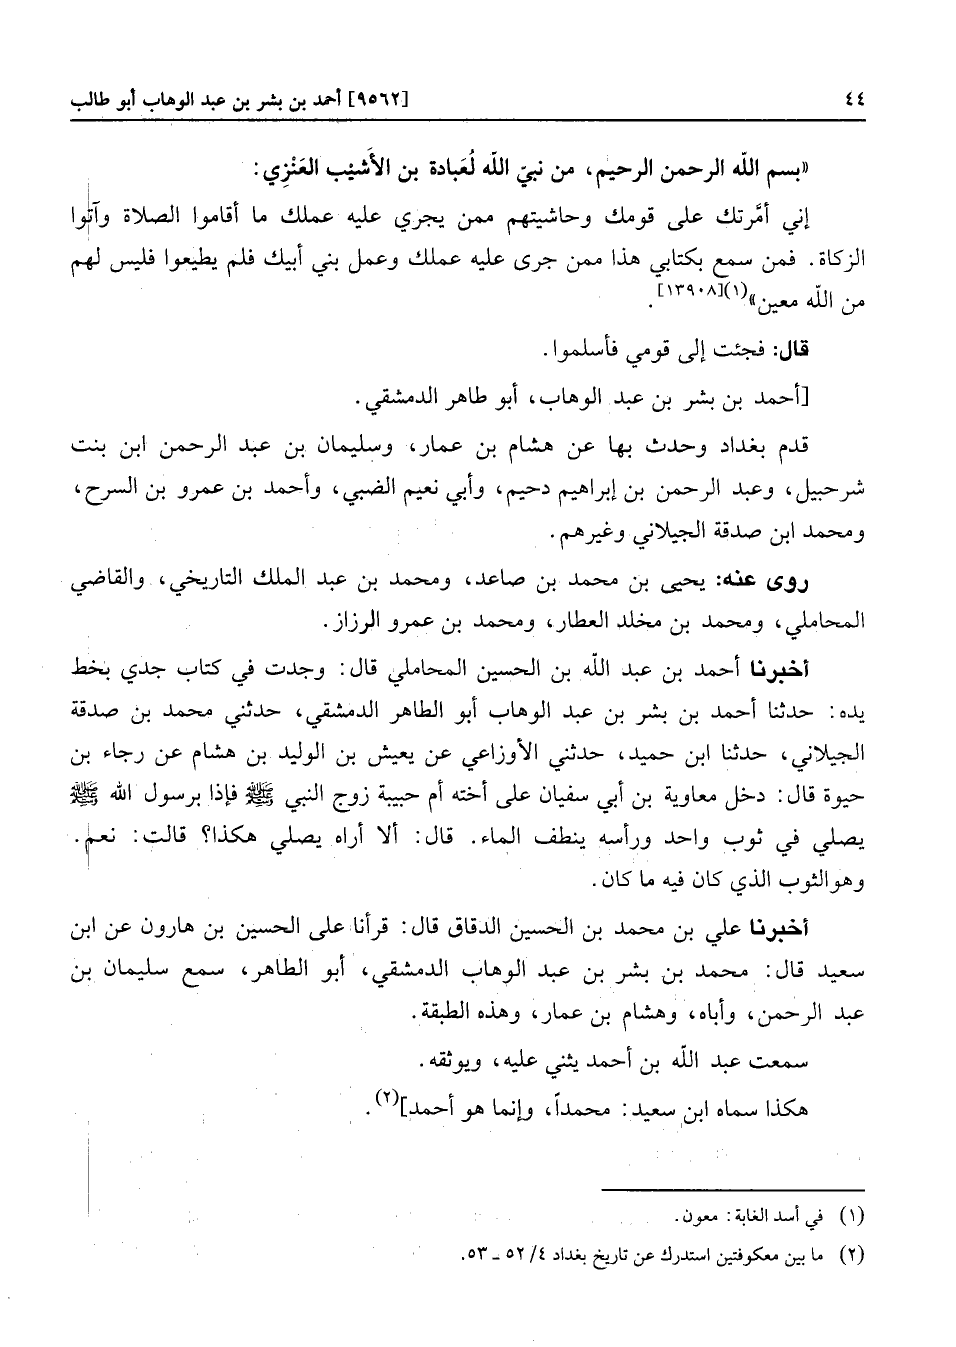 ٤٤ [٩٥٦٢] أحمد بن بشر بن عبد الوهاب أبو طالب
«بسم اللّه الرحمن الرحيم، من نبيّ اللّه لُعَبادة بن الأَشيْب العَنْزِي:
إني أمَّرتك على قومك وحاشيتهم ممن يجري عليه عملك ما أقاموا الصلاة وآتوا
الزكاة. فمن سمع بكتابي هذا ممن جرى عليه عملك وعمل بني أبيك فلم يطيعوا فليس لهم
من اللّه معين»(١)[١٣٩٠٨].
قال: فجئت إلى قومي فأسلموا.
[أحمد بن بشر بن عبد الوهاب، أبو طاهر الدمشقي.
قدم بغداد وحدث بها عن هشام بن عمار، وسليمان بن عبد الرحمن ابن بنت
شرحبيل، وعبد الرحمن بن إبراهيم دحيم، وأبي نعيم الضبي، وأحمد بن عمرو بن السرح،
ومحمد ابن صدقة الجيلاني وغيرهم.
روى عنه: يحيى بن محمد بن صاعد، ومحمد بن عبد الملك التاريخي، والقاضي
المحاملي، ومحمد بن مخلد العطار، ومحمد بن عمرو الرزاز.
أخبرنا أحمد بن عبد اللّه بن الحسين المحاملي قال: وجدت في كتاب جدي بخط
يده: حدثنا أحمد بن بشر بن عبد الوهاب أبو الطاهر الدمشقي، حدثني محمد بن صدقة
الجيلاني، حدثنا ابن حميد، حدثني الأوزاعي عن يعيش بن الوليد بن هشام عن رجاء بن
حيوة قال: دخل معاوية بن أبي سفيان على أخته أم حبيبة زوج النبي ﷺ فإذا برسول الله ﷺ
يصلي في ثوب واحد ورأسه ينطف الماء. قال: ألا أراه يصلي هكذا؟ قالت: نعم.
وهو الثوب الذي كان فيه ما كان.
أخبرنا علي بن محمد بن الحسين الدقاق قال: قرأنا على الحسين بن هارون عن ابن
سعيد قال: محمد بن بشر بن عبد الوهاب الدمشقي، أبو الطاهر، سمع سليمان بن
عبد الرحمن، وأباه، وهشام بن عمار، وهذه الطبقة.
سمعت عبد اللّه بن أحمد يثني عليه، ويوثقه.
هكذا سماه ابن سعيد: محمداً، وإنما هو أحمد](٢).
(١) في أسد الغابة: معون.
(٢) ما بين معكوفتين استدرك عن تاريخ بغداد ٤/ ٥٢ ـ ٥٣.